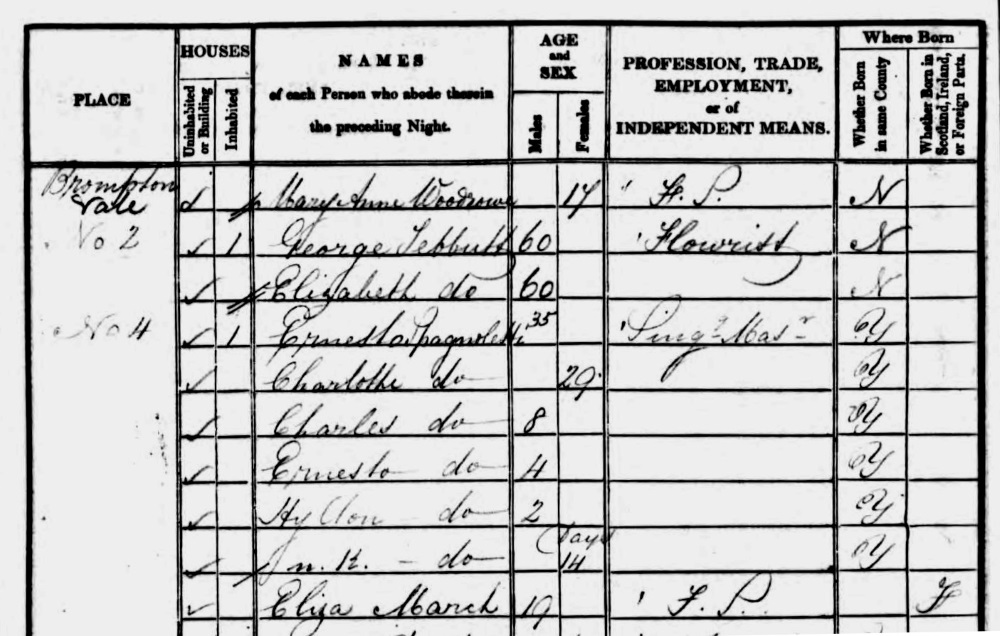 PLACE HOUSES Uninhabited or Building Inhabited
NAMES of each Person who abode therein the preceding Night.
AGE and SEX Males Females
PROFESSION, TRADE, EMPLOYMENT, or of INDEPENDENT MEANS.
Where Born Whether Born in same County Whether Born in Scotland, Ireland, or Foreign Parts.
Brompton
Vale Mary Anne Woodrowe 17 F. S. N
No 2 1 George Tebbutt 60 Flowrist N
Elizabeth do 60 N
No 4 1 Ernesto Spagnoletti 35 Singg Masr Y
Charlotte do 29 Y
Charles do 8 Y
Ernesto do 4 Y
Hylton do 2 Y
n. K. do Days 14 Y
Eliza March 19 F. S. F